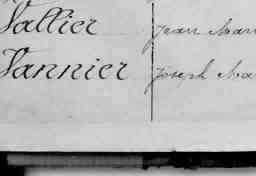 Vallier Jean Mar
Vannier Joseph Ma